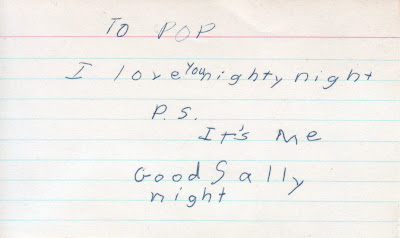 TO POP
I love you nighty night
P.S.
It's Me
Good Sally
night